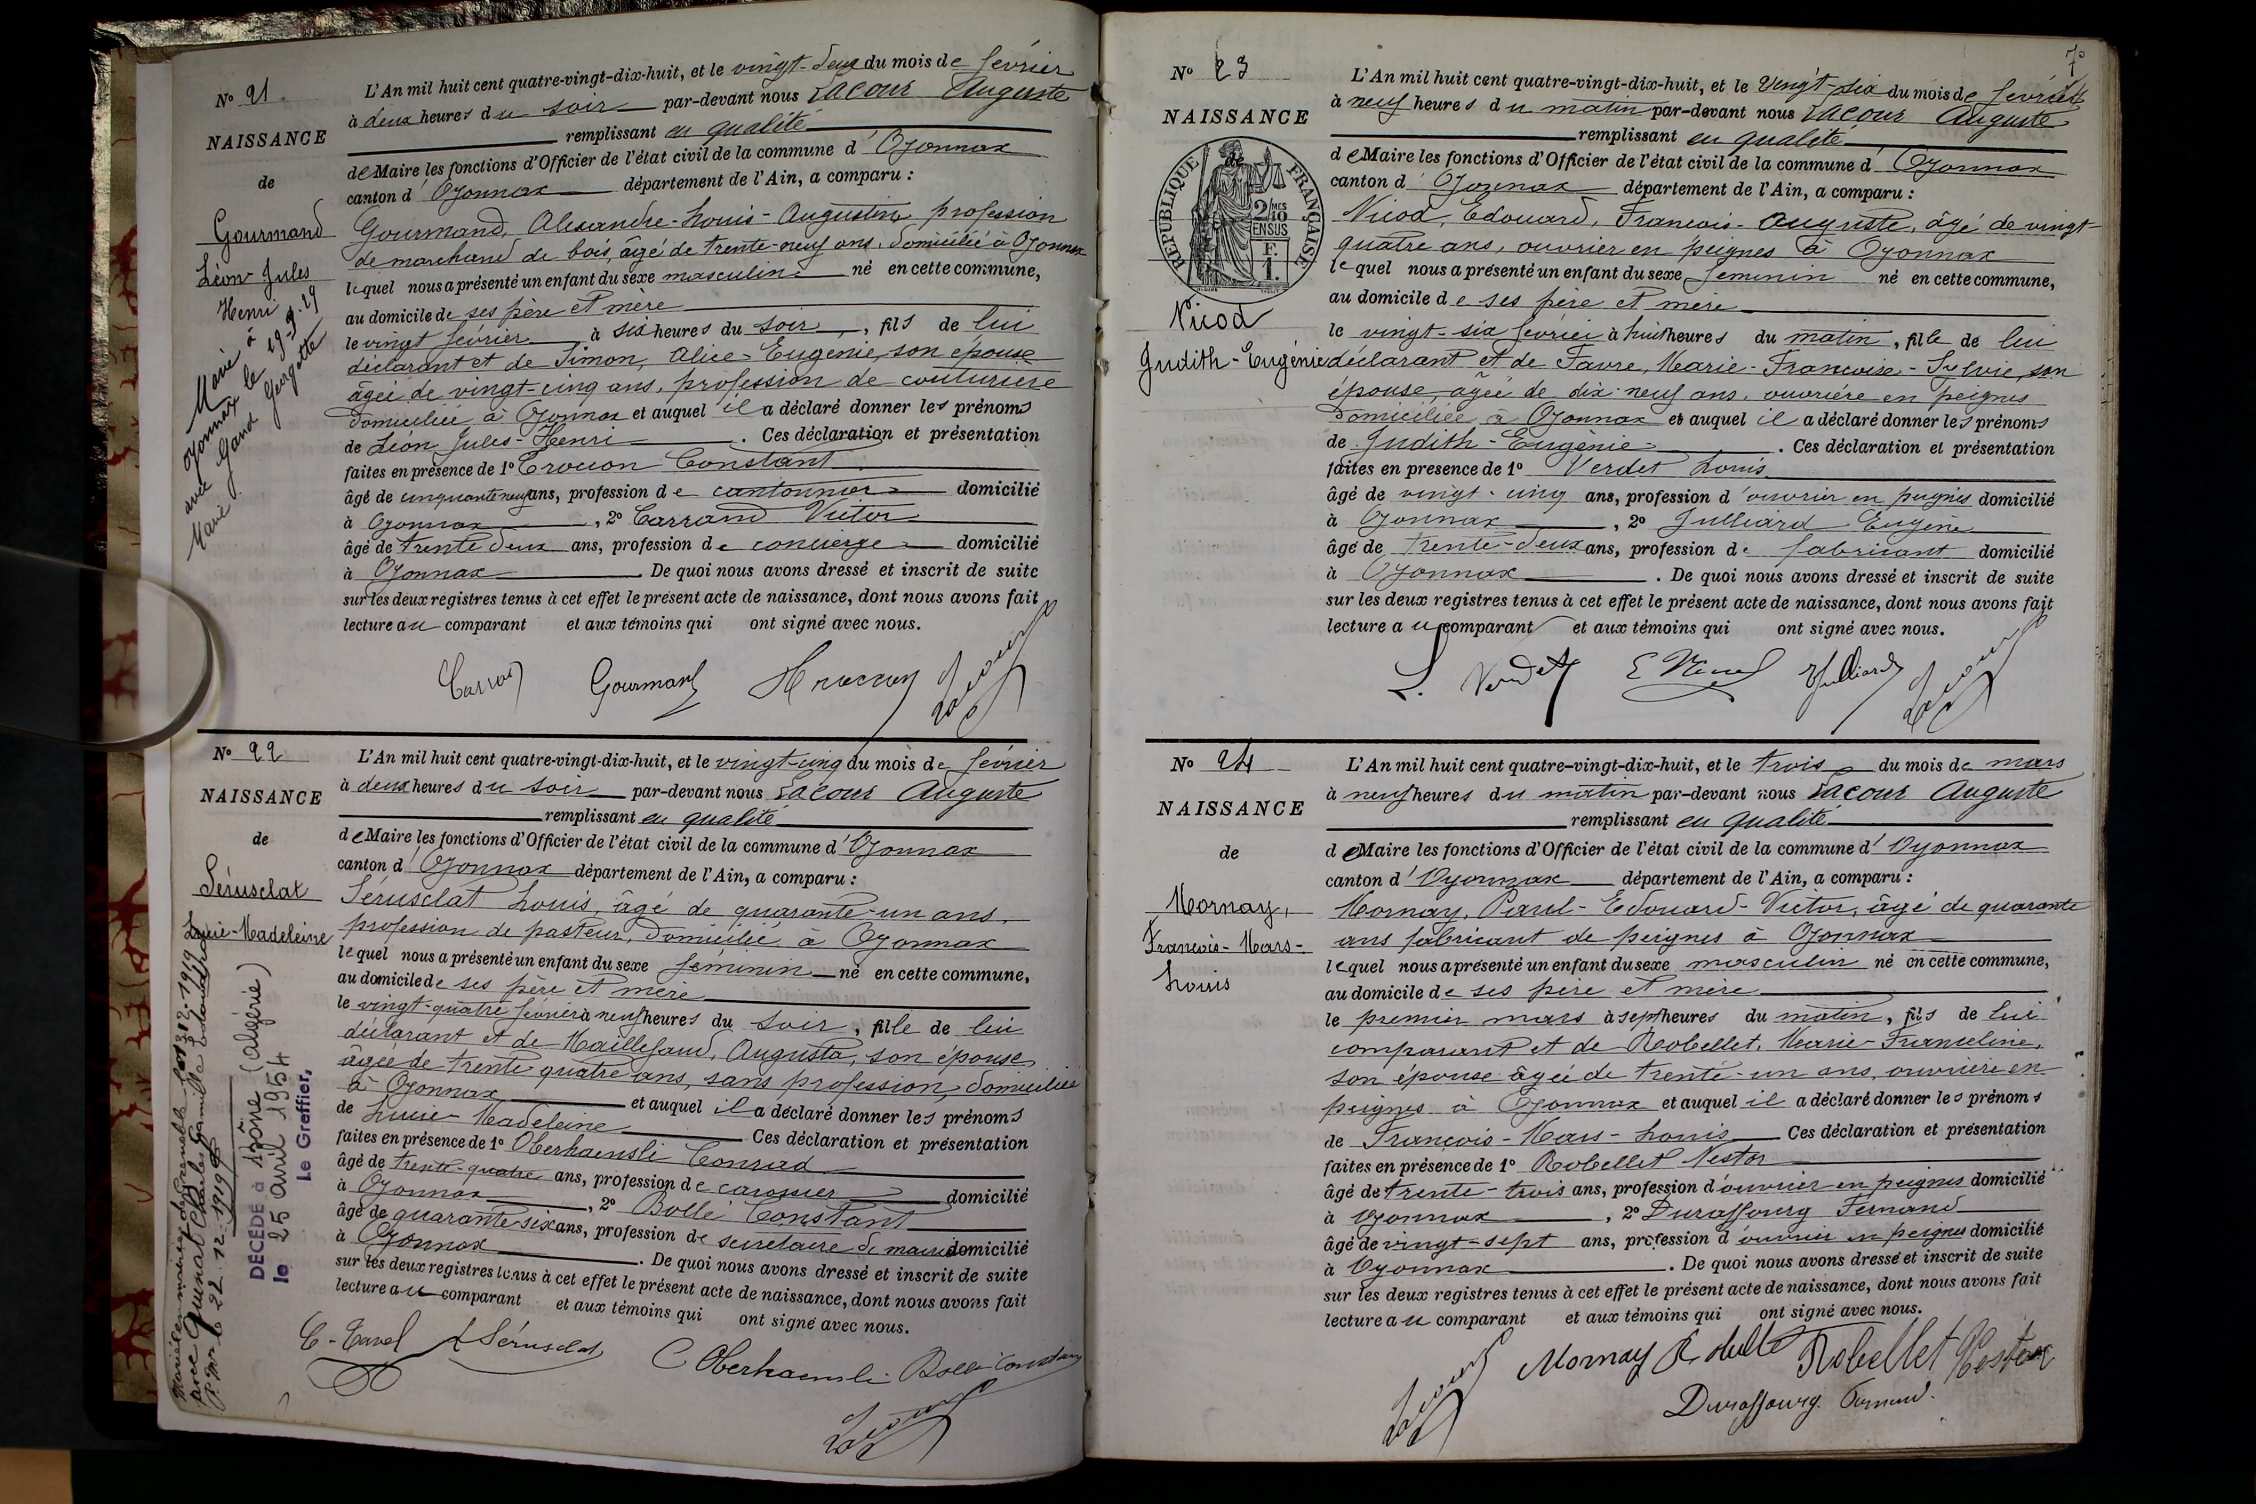 Nº 21
NAISSANCE
de
Gourmand
Léon-Jules
Henri
Marié à
Oyonnax le 19-9-29
avec Gand Georgette
Marie
L'An mil huit cent quatre-vingt-dix-huit, et le vingt-deux du mois de février
à deux heures du soir par-devant nous Lacour Auguste
remplissant en qualité
de Maire les fonctions d'Officier de l'état civil de la commune d'Oyonnax
canton d'Oyonnax département de l'Ain, a comparu :
Gourmand, Alexandre-Louis-Augustin, profession
de marchand de bois, âgé de trente-neuf ans, domicilié à Oyonnax
lequel nous a présenté un enfant du sexe masculin né en cette commune,
au domicile de ses père et mère
le vingt février à six heures du soir, fils de lui
déclarant et de Simon, Alice-Eugénie, son épouse
âgée de vingt-cinq ans, profession de couturière
domiciliée à Oyonnax et auquel il a déclaré donner les prénoms
de Léon Jules-Henri. Ces déclaration et présentation
faites en présence de 1º Constant
âgé de cinquante neuf ans, profession de cantonnier domicilié
à Oyonnax, 2º Carrand Victor
âgé de trente deux ans, profession de concierge domicilié
à Oyonnax. De quoi nous avons dressé et inscrit de suite
sur les deux registres tenus à cet effet le présent acte de naissance, dont nous avons fait
lecture au comparant et aux témoins qui ont signé avec nous.
Gourmand Lacour
Nº 22
NAISSANCE
de
Sérusclat
Lucie-Madeleine
avec Quinat Charles Camille
le 22.12.1919
DÉCÉDÉ à (Algérie)
le 25 avril 1954
Le Greffier,
L'An mil huit cent quatre-vingt-dix-huit, et le vingt-cinq du mois de février
à deux heures du soir par-devant nous Lacour Auguste
remplissant en qualité
de Maire les fonctions d'Officier de l'état civil de la commune d'Oyonnax
canton d'Oyonnax département de l'Ain, a comparu :
Sérusclat Louis, âgé de quarante-un ans,
profession de pasteur, domicilié à Oyonnax
lequel nous a présenté un enfant du sexe féminin né en cette commune,
au domicile de ses père et mère
le vingt-quatre février à neuf heures du soir, fille de lui
déclarant et de Maillefaud, Augusta, son épouse
âgée de trente quatre ans, sans profession, domiciliée
à Oyonnax et auquel il a déclaré donner les prénoms
de Lucie-Madeleine Ces déclaration et présentation
faites en présence de 1º Oberhaensli Conrad
âgé de trente-quatre ans, profession de carossier domicilié
à Oyonnax, 2º Bollé Constant
âgé de quarante-six ans, profession de secrétaire de mairie domicilié
à Oyonnax. De quoi nous avons dressé et inscrit de suite
sur les deux registres tenus à cet effet le présent acte de naissance, dont nous avons fait
lecture au comparant et aux témoins qui ont signé avec nous.
L Sérusclat C Oberhaensli Bollé Constant
Lacour
Nº 23
NAISSANCE
de
RÉPUBLIQUE FRANÇAISE
2/10 MES
EN SUS
F.
1.
Nicod
Judith-Eugénie
L'An mil huit cent quatre-vingt-dix-huit, et le vingt-six du mois de février
à neuf heures du matin par-devant nous Lacour Auguste
remplissant en qualité
de Maire les fonctions d'Officier de l'état civil de la commune d'Oyonnax
canton d'Oyonnax département de l'Ain, a comparu :
Nicod, Edouard, Francois-Auguste, âgé de vingt-
quatre ans, ouvrier en peignes à Oyonnax
lequel nous a présenté un enfant du sexe féminin né en cette commune,
au domicile de ses père et mère
le vingt-six février à huit heures du matin, fille de lui
déclarant et de Favre, Marie-Francoise-Sylvie, son
épouse, âgée de dix-neuf ans, ouvrière en peignes
domiciliée à Oyonnax et auquel il a déclaré donner les prénoms
de Judith-Eugénie. Ces déclaration et présentation
faites en présence de 1º Verdet Louis
âgé de vingt-cinq ans, profession d'ouvrier en peignes domicilié
à Oyonnax, 2º Julliard Eugène
âgé de trente-deux ans, profession de fabricant domicilié
à Oyonnax. De quoi nous avons dressé et inscrit de suite
sur les deux registres tenus à cet effet le présent acte de naissance, dont nous avons fait
lecture au comparant et aux témoins qui ont signé avec nous.
L. Verdet E Nicod Julliard Lacour
Nº 24
NAISSANCE
de
Mornay,
Francois-Mars-
Louis
L'An mil huit cent quatre-vingt-dix-huit, et le trois du mois de mars
à neuf heures du matin par-devant nous Lacour Auguste
remplissant en qualité
de Maire les fonctions d'Officier de l'état civil de la commune d'Oyonnax
canton d'Oyonnax département de l'Ain, a comparu :
Mornay, Paul-Edouard-Victor, âgé de quarante
ans fabricant de peignes à Oyonnax
lequel nous a présenté un enfant du sexe masculin né en cette commune,
au domicile de ses père et mère
le premier mars à sept heures du matin, fils de lui
comparant et de Robellet, Marie-Franceline,
son épouse âgée de trente-un ans, ouvrière en
peignes à Oyonnax et auquel il a déclaré donner les prénoms
de François-Mars-Louis Ces déclaration et présentation
faites en présence de 1º Robellet Nestor
âgé de trente-trois ans, profession d'ouvrier en peignes domicilié
à Oyonnax, 2º Duraffourg Fernand
âgé de vingt-sept ans, profession d'ouvrier en peignes domicilié
à Oyonnax. De quoi nous avons dressé et inscrit de suite
sur les deux registres tenus à cet effet le présent acte de naissance, dont nous avons fait
lecture au comparant et aux témoins qui ont signé avec nous.
Lacour Mornay Robellet Nestor
Duraffourg Fernand